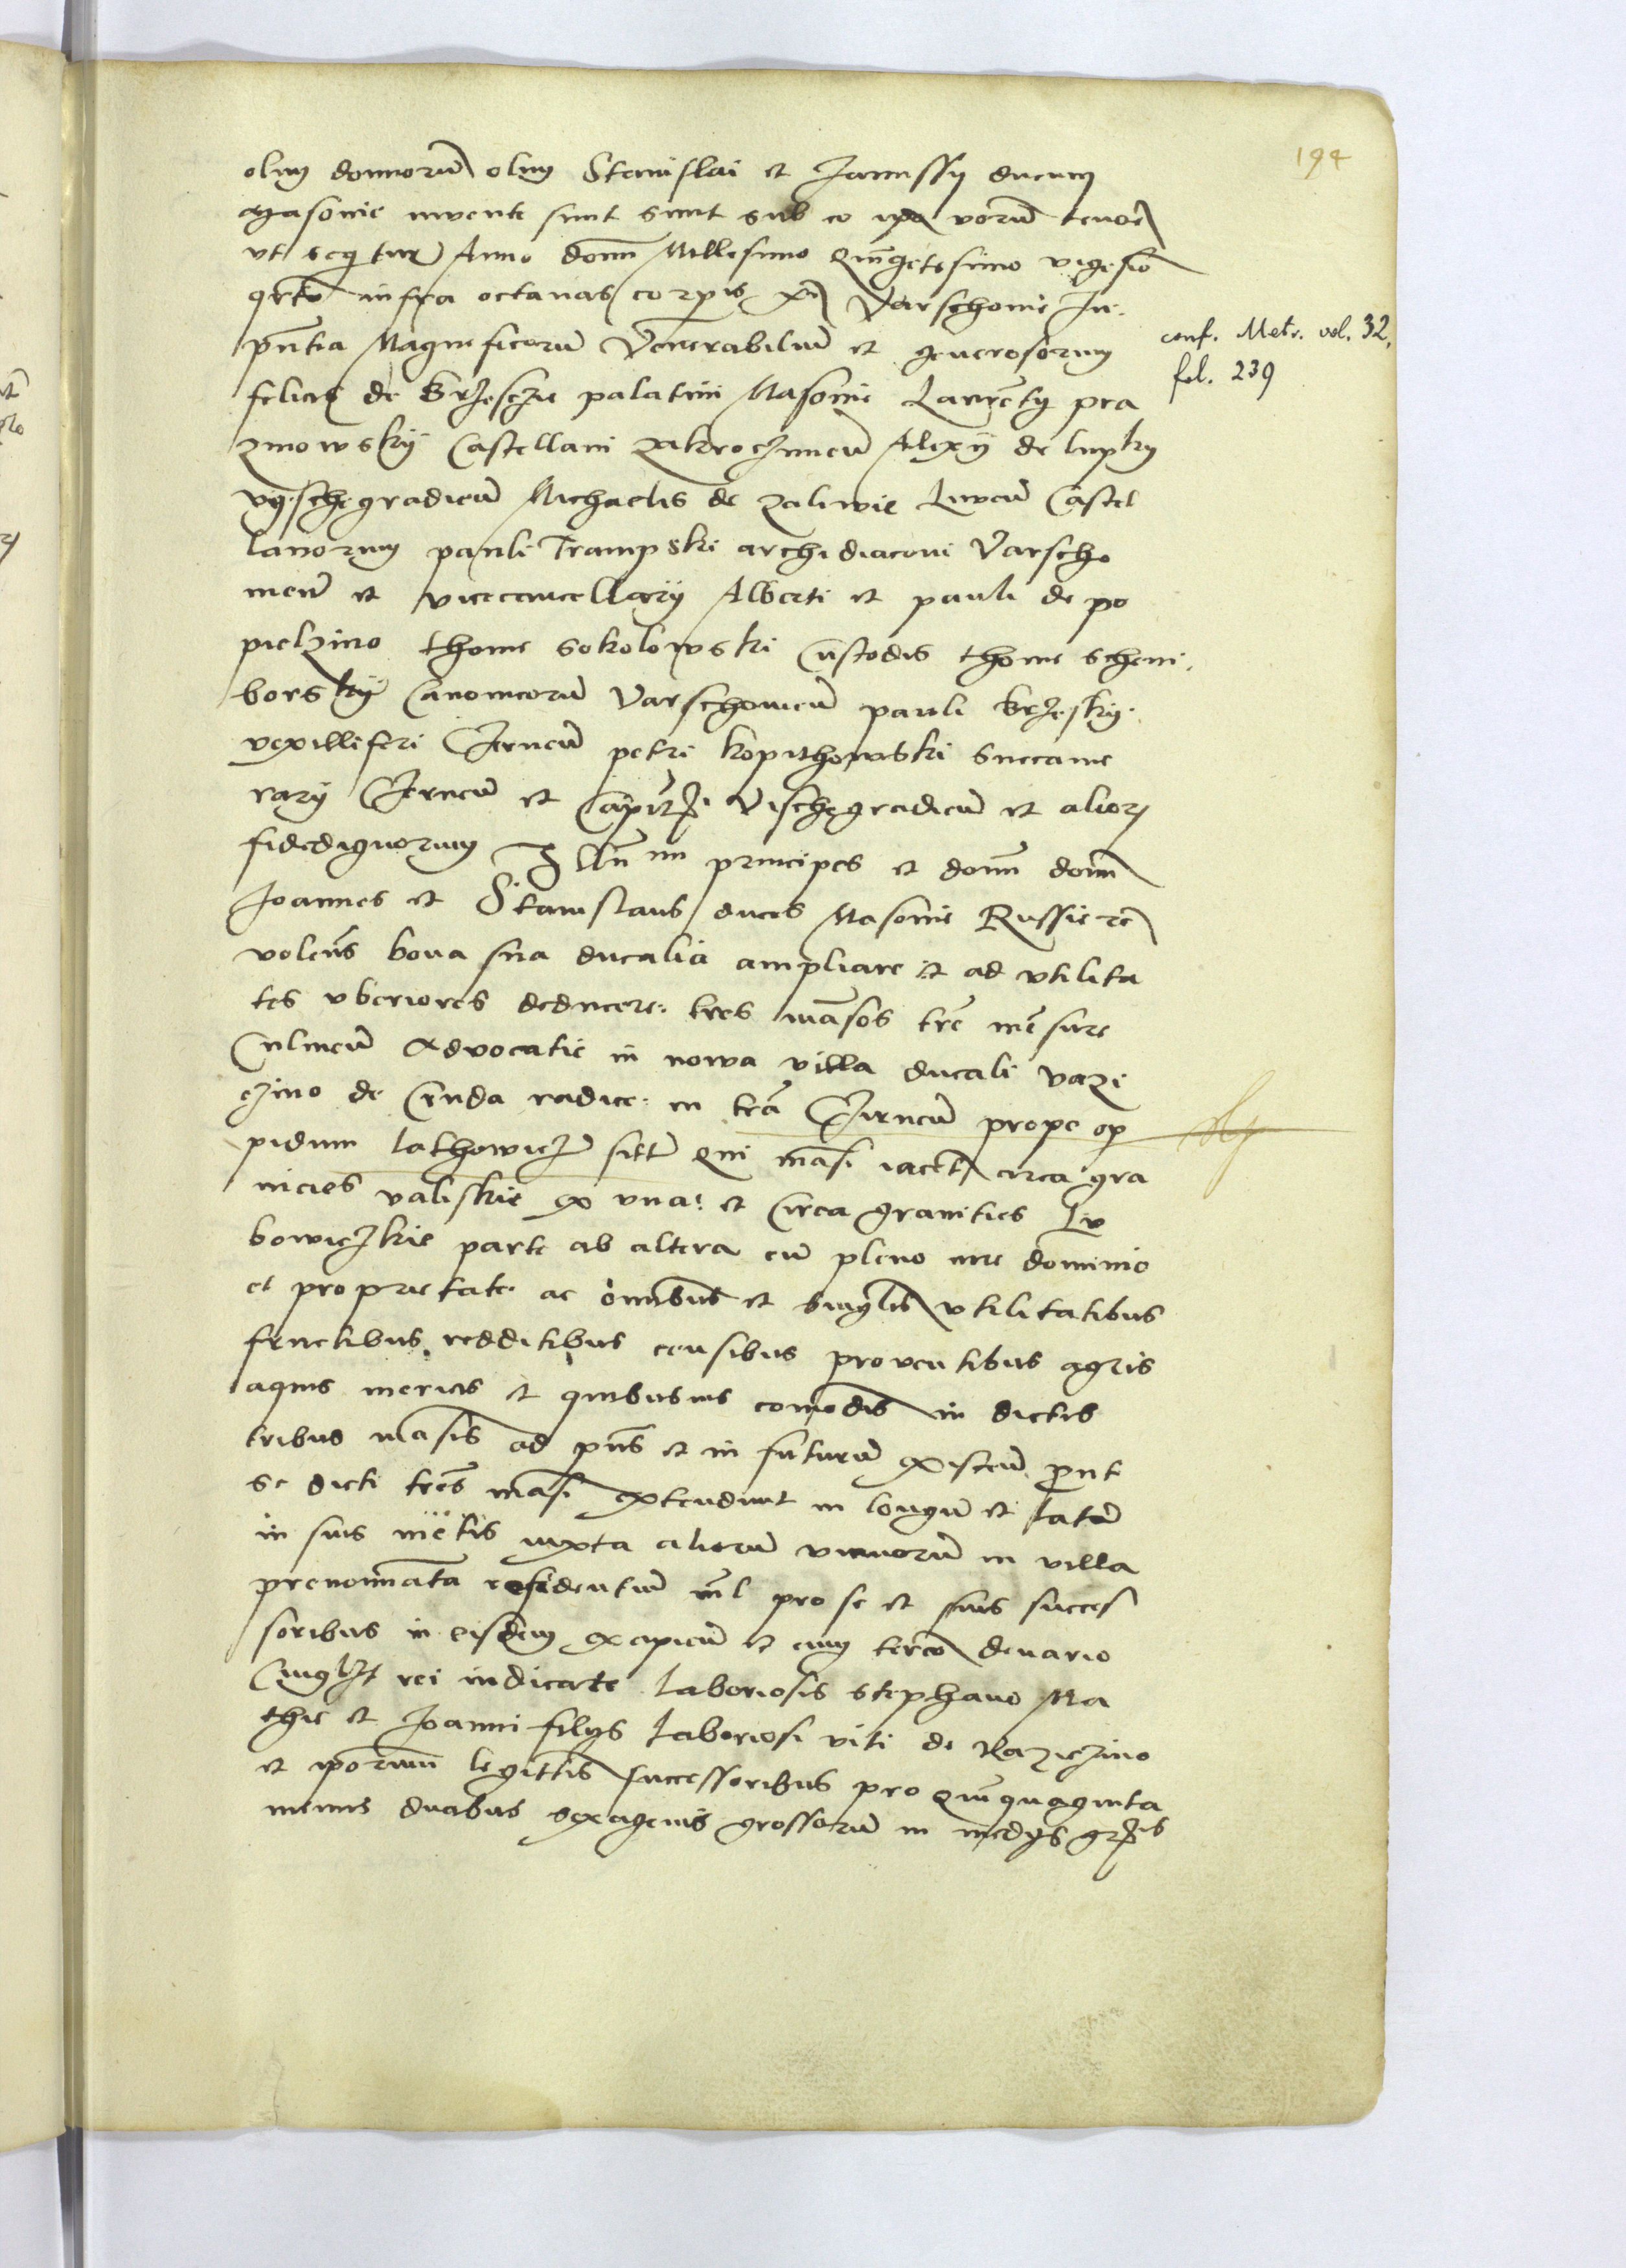 194
olim dominorum olim Stanislai et Janussij ducum
Masovie invente sunt sunt sub eo verborum tenore
ut sequitur Anno domini Millesimo Quingetesimo vigesimo
qrto infra octanas corporis xpi Varschovie In
pntia Magnificorum Venerabilium et generosorum
felicis de Brzesczie palatini Masovie Laurentij pra
zmowskij Castellani Zakroczimen Alexij de lupky
vyschegradien Michaelis de Zaliwie Liwen Castel
lanorum pauli Trampski archidiaconi Varscho
nien et vicecancellarij Alberti et pauli de po
pielzino thome sokolowski Custodis thome scheni
borskij Canonicorum Varschovien pauli Brzeskij
vexilliferi Czernen petri kopithowski succame
rarij Czernen et Capitz Vischegradien et alior
fidedignorum Illmi principes et domi domi
Joannes et Stanislaus duces Masovie Russie rc
volens bona sua ducalia ampliare et ad utilita
tes uberiores deducere tres mansos tre mesure
Culmen Advocatie in nowa villa ducali vazi
czino de Cruda radice in tra Czirnen prope op
pidum lathowicz sitt qui mansi iacent circa gra
nicies valiskie ex una et circa granities Lu
bowiczkie parte ab altera cum pleno iure dominio
et proprietate ac omnibus et singulis utilitatibus
fructibus redditibus censibus proventibus agris
aquis mericis et quibusuis comodis in dictis
tribus mansis ad pns et in futurum existen prout
se dicti tres mansi extendunt in longum et latum
in suis metis iuxta aliorum vicinorum in villa
prenominata residentium nil pro se et suis succes
soribus in eisdem excipien et cum tercio denario
Cuuslzt rei indicate laboriosis stephano Ma
thie et Joanni filijs laboriosi viti de Raziczino
et iporum legittis successoribus pro Quinquaginta
minus duabus sexagenis grossorum in medijs grs
conf. Metr. vol. 32,
fol. 239